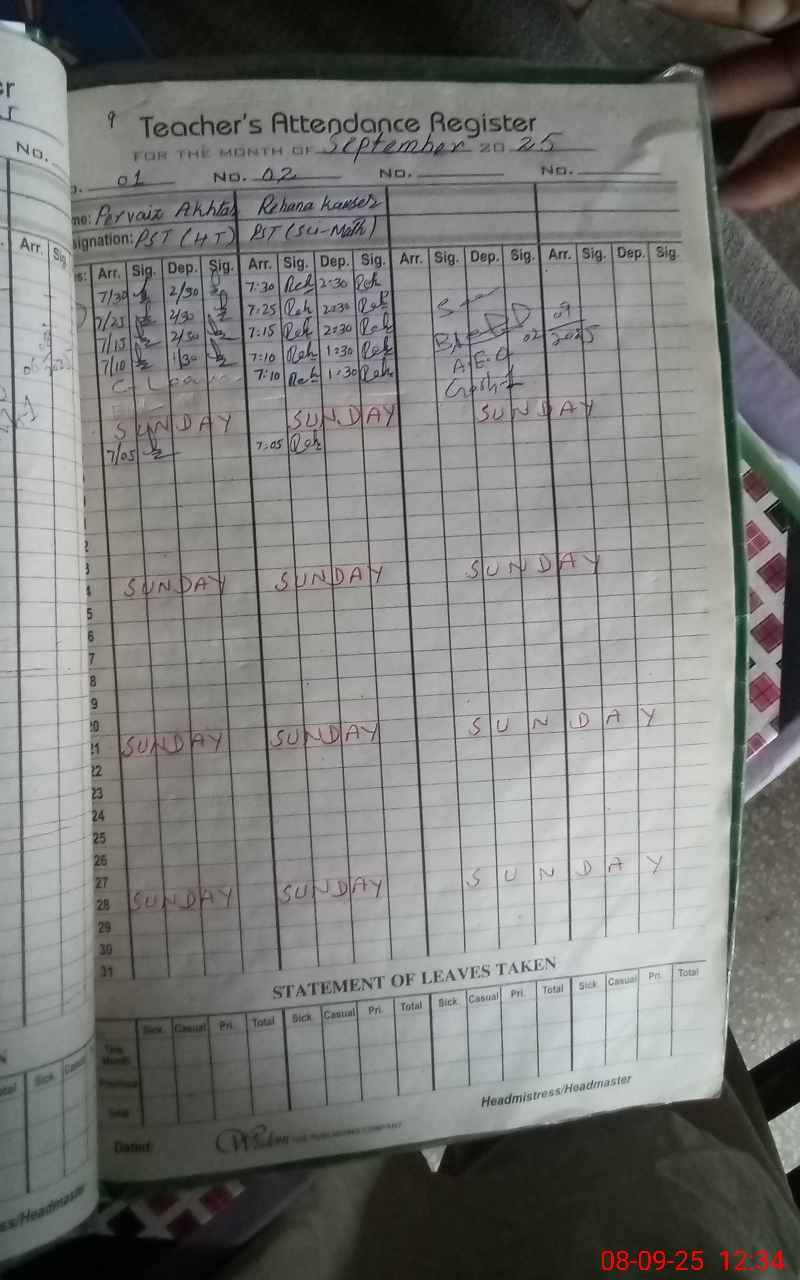 9 Teacher's Attendance Register
FOR THE MONTH OF September 20 25
01 No. 02 No. No.
me: Pervaiz Akhtar Rehana Kauser
signation: PST (HT) PST (Sci-Math)
Arr. Sig. Dep. Sig. Arr. Sig. Dep. Sig. Arr. Sig. Dep. Sig. Arr. Sig. Dep. Sig.
7/30 2/30 7:30 Reh 2:30 Reh
7/25 2/30 7:25 Reh 2:30 Reh
7/15 2/30 7:15 Reh 2:30 Reh 02 09 2025
7/10 1/30 7:10 Reh 1:30 Reh A.E.O
C. Leave 7:10 Reh 1:30 Reh
SUNDAY SUNDAY SUNDAY
7/05 7:05 Reh
2
3
4 SUNDAY SUNDAY SUNDAY
5
6
7
8
9
20
21 SUNDAY SUNDAY SUNDAY
22
23
24
25
26
27
28 SUNDAY SUNDAY SUNDAY
29
30
31
STATEMENT OF LEAVES TAKEN
Sick. Casual Pri. Total Sick. Casual Pri. Total Sick. Casual Pri. Total Sick. Casual Pri. Total
This Month
Previous
Total
Headmistress/Headmaster
Dated:
PUBLISHING COMPANY
No.
Arr. Sig.
otal Sick. Casual
ss/Headmaster
08-09-25 12:34